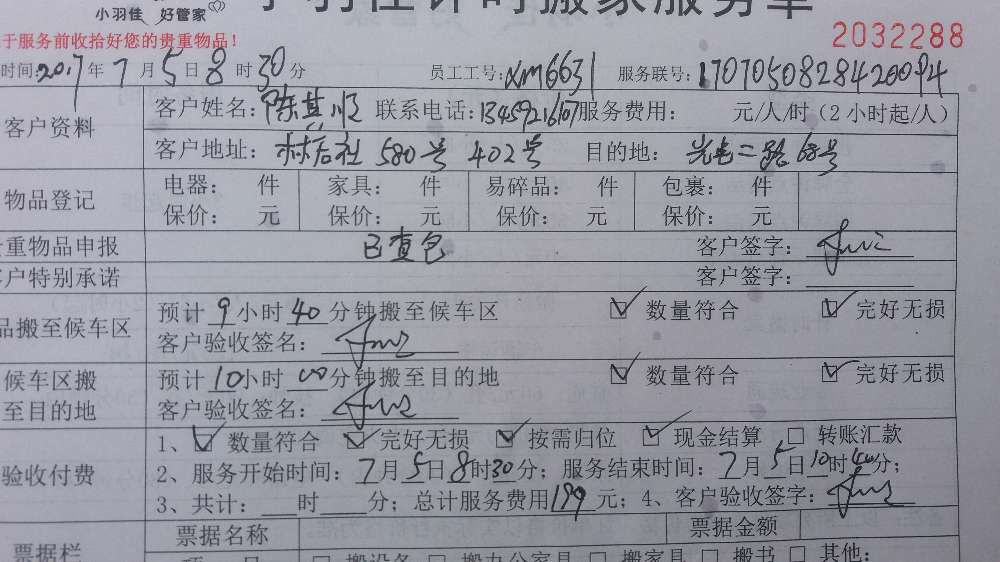 小羽佳 好管家
小羽佳计时搬家服务单
于服务前收拾好您的贵重物品！
2032288
时间：2017年7月5日8时30分 员工工号：XM6631 服务联号：170705082842009
客户资料
客户姓名：陈其顺 联系电话：13459216107 服务费用： 元/人/时（2小时起/人）
客户地址：林后社580号402号 目的地：光电二路68号
物品登记
电器： 件 家具： 件 易碎品： 件 包裹： 件
保价： 元 保价： 元 保价： 元 保价： 元
贵重物品申报 已查包 客户签字：
客户特别承诺 客户签字：
品搬至候车区
预计9小时40分钟搬至候车区 数量符合 完好无损
客户验收签名：
候车区搬至目的地
预计10小时00分钟搬至目的地 数量符合 完好无损
客户验收签名：
验收付费
1、数量符合 完好无损 按需归位 现金结算 转账汇款
2、服务开始时间：7月5日8时30分；服务结束时间：7月5日10时40分；
3、共计： 时 分；总计服务费用199元；4、客户验收签字：
票据栏
票据名称 票据金额
项 目 搬设备 搬办公家具 搬家具 搬书 其他：